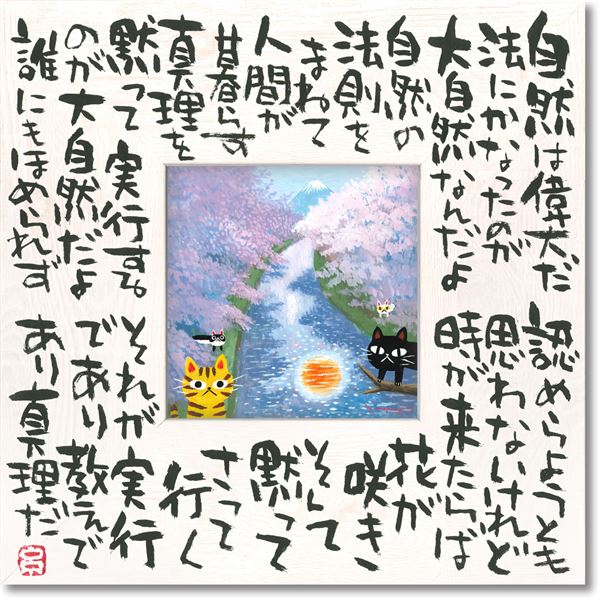 自然は偉大だ
法にかなったのが
大自然なんだよ
自然の
法則を
まねて
人間が
暮らす
真理を
黙って実行する
のが大自然だよ
誰にもほめられず
認めらようとも
思わないけれど
時が来たらば
花が
咲き
そして
黙って
さって
行く
それが実行
であり教えで
あり真理だ